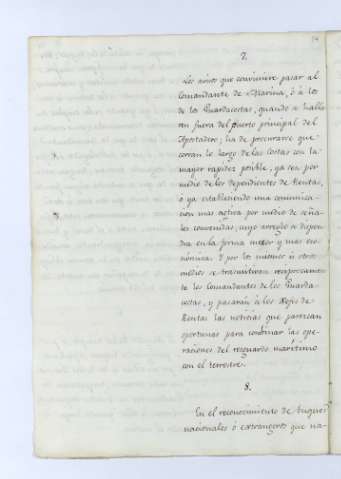 7.
Los avisos que conviniere pasar al
Comandante de Marina, ó á los
de los Guardacostas, quando se halla
ren fuera del puerto principal del
Apostadero, ha de procurarse que
corran lo largo de las costas con la
mayor rapidez posible, ya sea por
medio de los dependientes de Rentas,
ó ya estableciendo una comunica-
cion mas activa por medio de seña-
les convenidas, cuyo arreglo se dispon-
dra en la forma mejor y mas eco-
nómica. Y por los mismos ú otros
medios se transmitiran reciprocamen-
te los Comandantes de los Guarda-
costas, y pasarán á los Xefes de
Rentas las noticias que parezcan
oportunas para combinar las ope-
raciones del resguardo maritimo
con el terrestre.
8.
En el reconocimiento de buques
nacionales ó extrangeros que na-